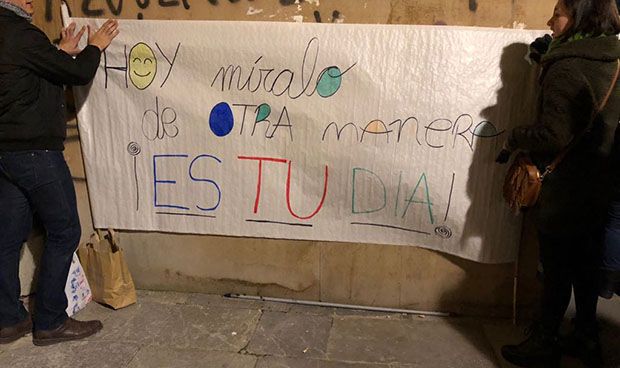 HOY míralo
de OTRA manera
¡ES TU DIA!